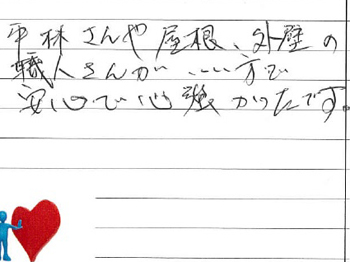 平林さんや屋根、外壁の
職人さんが、いい方で
安心で心強かったです。